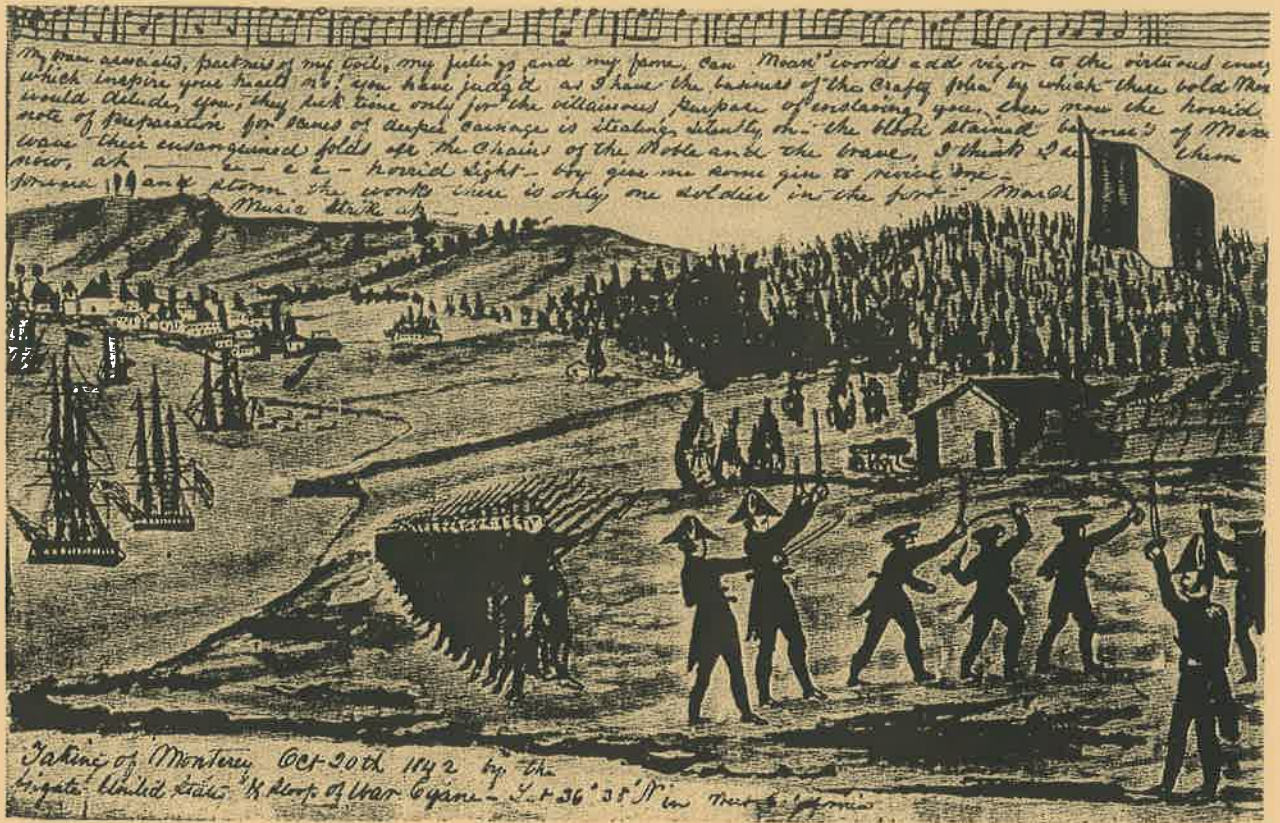 My brave associates, partners of my toil, my feelings and my fame, can Moan'' words add vigor to the virtuous
which inspire your hearts no! you have judg'd as I have the baseness of the Crafty plea by which these bold
would delude you; they seek time only for the villainous purpose of enslaving you, even now the horrid
note of preparation for scenes of deeper carnage is stealing silently on - the blood stained banner's of
wave their ensanguined folds oer the Chains of the Noble and the brave, I think I see them
now, ah — e - e e - horrid sight - boy give me some gin to revive me -
forward and storm the works there is only one soldier in the fort - March
Music Strike up
Taking of Monterey Oct 20th 1842 by the
frigate United States & Sloop of War Cyane - Lat 36° 38' N in